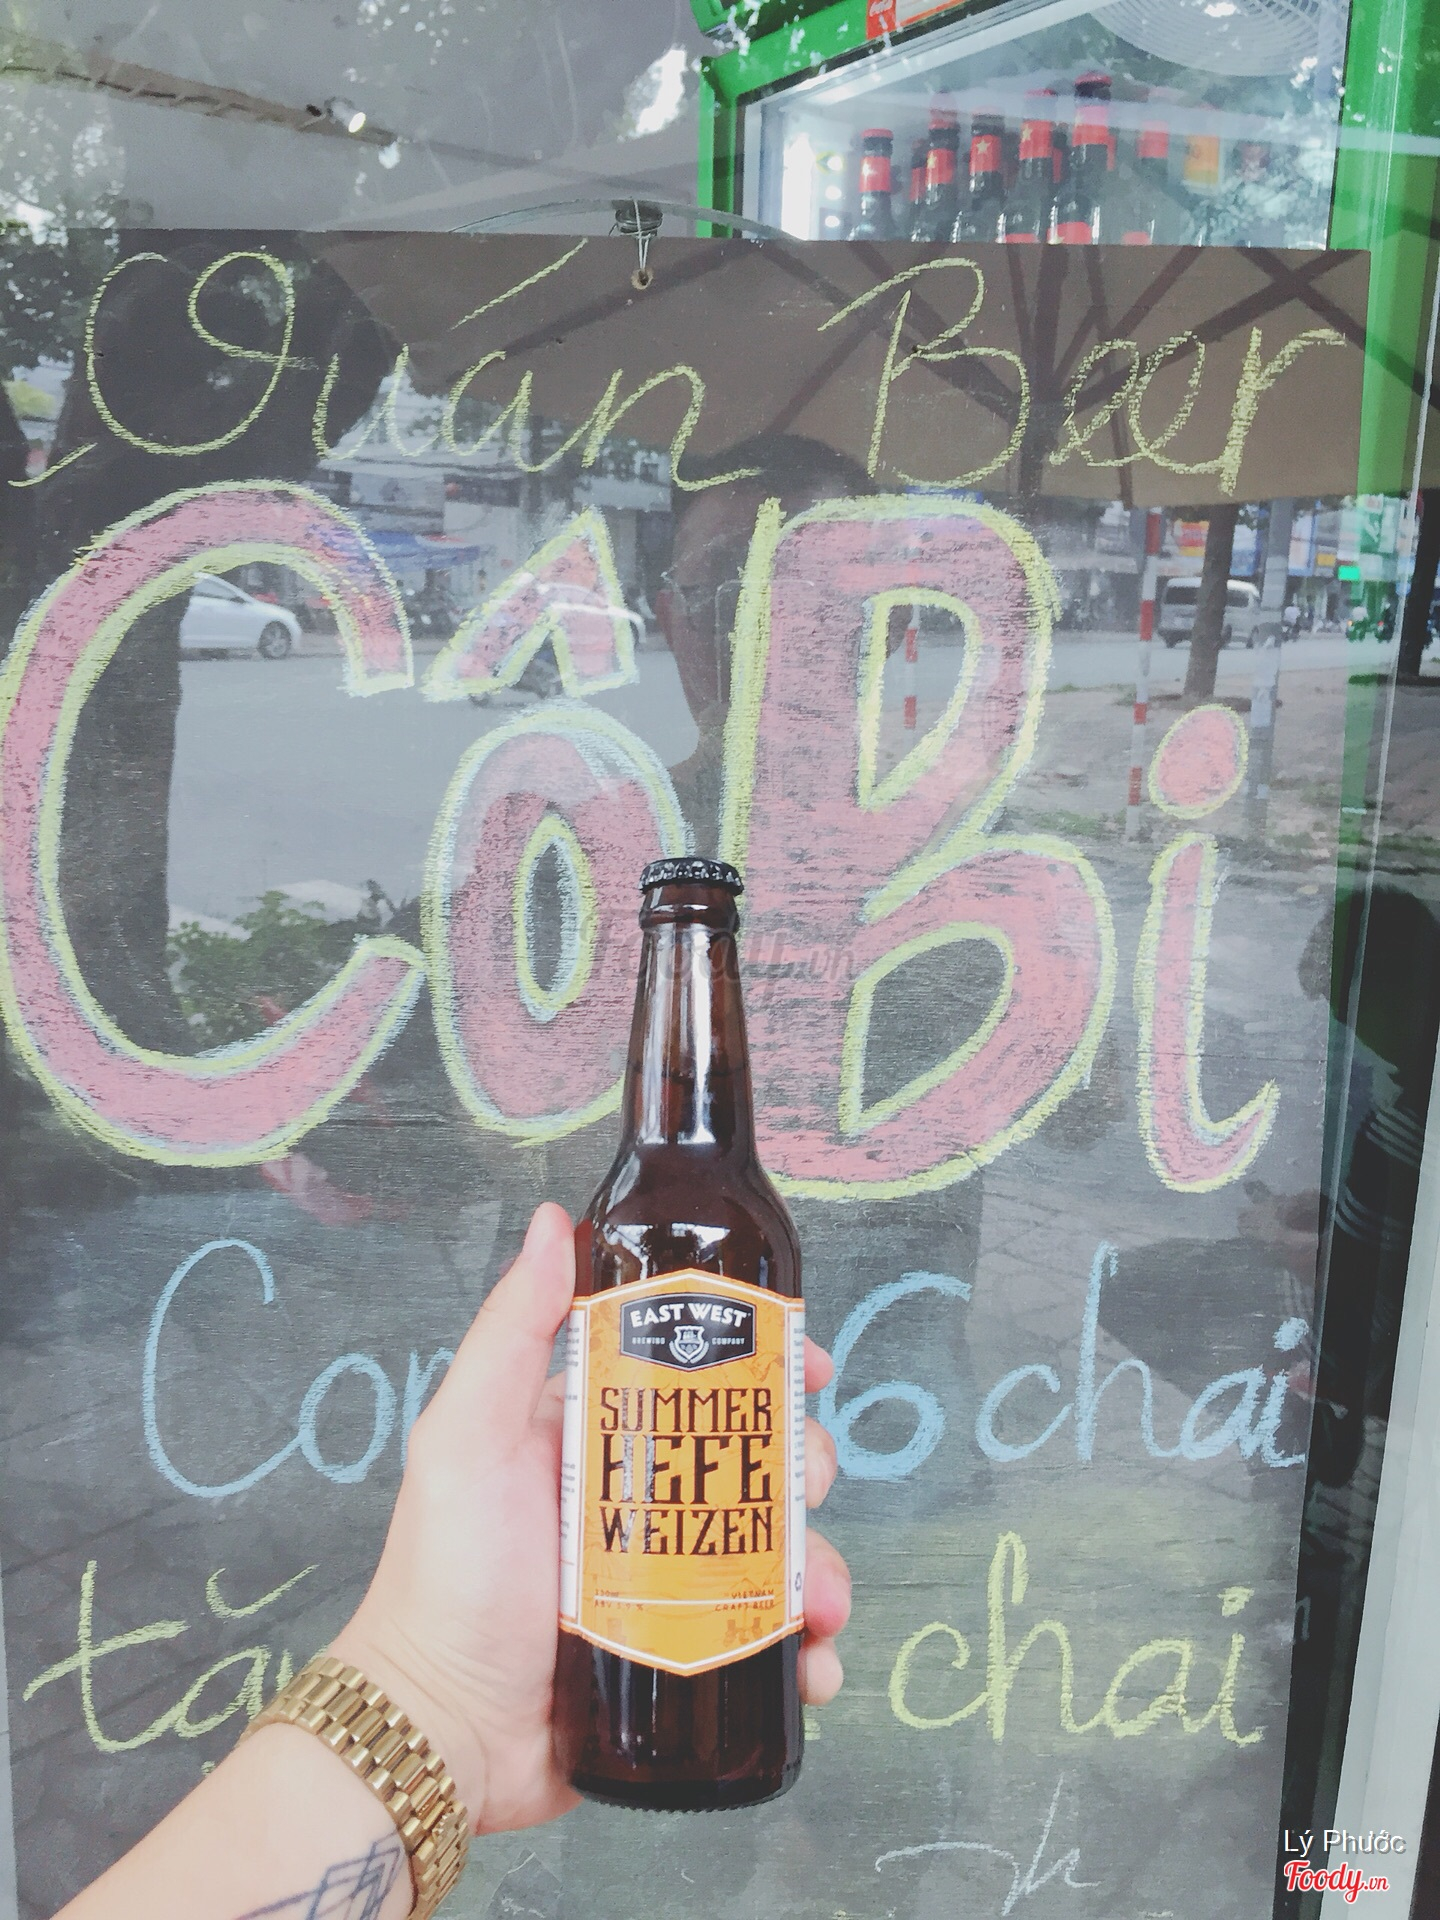 Quán Beer
CôBi
6 chai
chai
EAST WEST
BREWING COMPANY
SUMMER
HEFE
WEIZEN
VIETNAM
CRAFT BEER
Foody.vn
Lý Phước
Foody.vn